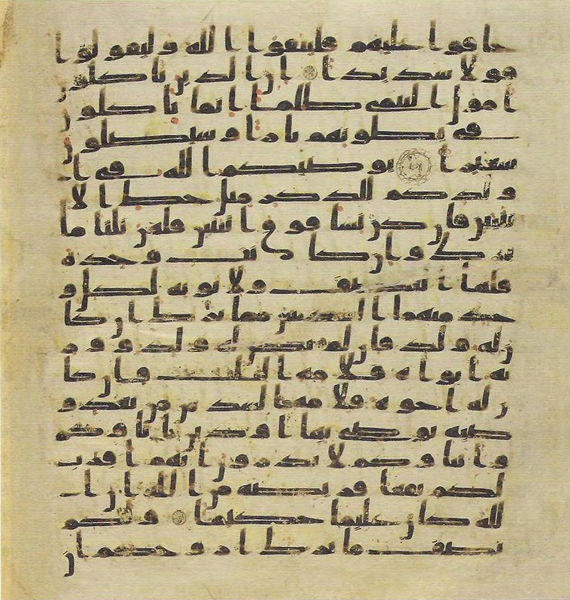 خافوا عليهم فليتقوا الله وليقولوا
قولا سديدا ان الذين ياكلون
اموال اليتمى ظلما انما ياكلون
في بطونهم نارا وسيصلون
سعيرا يوصيكم الله في ا
ولدكم للذكر مثل حظ الا
نثيين فان كن نسا فوق اثنتين فلهن ثلثا ما
ترك وان كانت وحده
فلها النصف ولابويه لكل و
حد منهما السدس مما ترك ان كا
ن له ولد فان لم يكن له ولد وور
ثه ابواه فلامه الثلث فان كا
ن له اخوه فلامه السدس من بعد و
صيه يوصي بها او دين اباوكم
وابناوكم لا تدرون ايهم اقرب
لكم نفعا فريضه من الله ان ا
لله كان عليما حكيما ولكم
نصف ما ترك ازوجكم ان